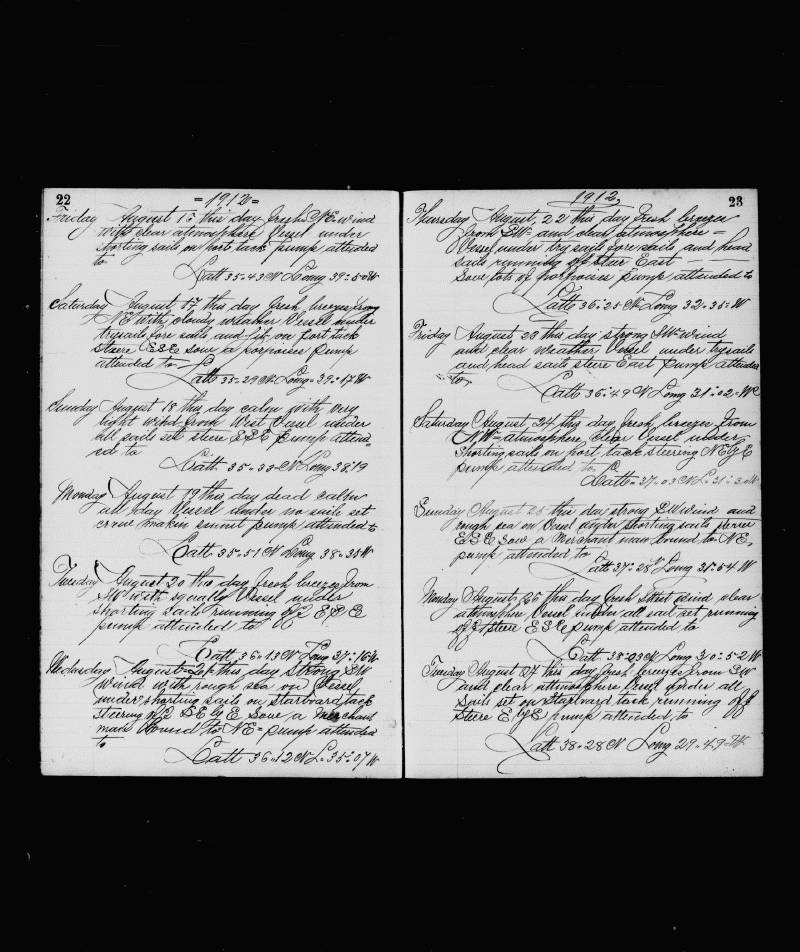 22
=1912=
Friday August 16 this day fresh NE wind
with clear atmosphere Vessel under
shorting sails on port tack pump attended
to
Latt 35-43 N Long 39-50 W
Saturday August 17 this day fresh breezes from
NE with cloudy weather Vessel under
trysails fore sails and jib on port tack
steere ESE Sow a porpoises pump
attended to
Latt 35-29 N Long 39-17 W
Sunday August 18 this day calm with very
light wind from West Vessel under
all sails set steere ESE pump attend=
ed to
Latt 35-33 N Long 38:19
Monday August 19 this day dead calm
all day Vessel under no sails set
crew makin sinnit pump attended to
Latt 35-51 N Long 38-35 W
Tuesday August 20 this day fresh breezes from
SW with squally Vessel under
shorting sails running off ESE
pump attended to
Latt 36-13 N Long 37-16 W
Wednesday August 21 this day strong SW
wind with rough sea on Vessel
under shorting sails on starboard tack
steering off SE by E Sow a Merchant
man bound to NE= pump attended
to
Latt 36-12 N L-35-07 W
1912
23
Thursday August, 22 this day fresh breezes
from SW- and clear atmosphere =
Vessel under try sails fore sails and head
sails running off steer East
Sow lots of porpoises pump attended to
Latt 36-25 N Long 32-35-W
Friday August 23 this day strong SW wind
and clear weather Vessel under trysails
and head sails steere East pump attended
to
Latt 36-49 N Long 31-02-W
Saturday August, 24 this day fresh breezes from
NW= atmosphere clear Vessel under
shorting sails on port tack steering NE by E
pump attended to
Latt-37-03 N L-31-30 W
Sunday August 25 this day strong SW wind and
rough sea on Vesel under shorting sails steere
ESE Sow a Merchant man bound to NE,
pump attended to
Latt 37-28 N Long 31-54 W
Monday August, 26 this day fresh West wind clear
atmosphere Vessel under all sail set running
off steere ESE pump attended to
Latt 38-03 N Long 30-52 W
Tuesday August 27 this day fresh breezes from SW
and clear atmosphere Vesel under all
sails set on Starbord tack running off
steere E by S pump attended to
Latt 38-28 N Long 29-49-W